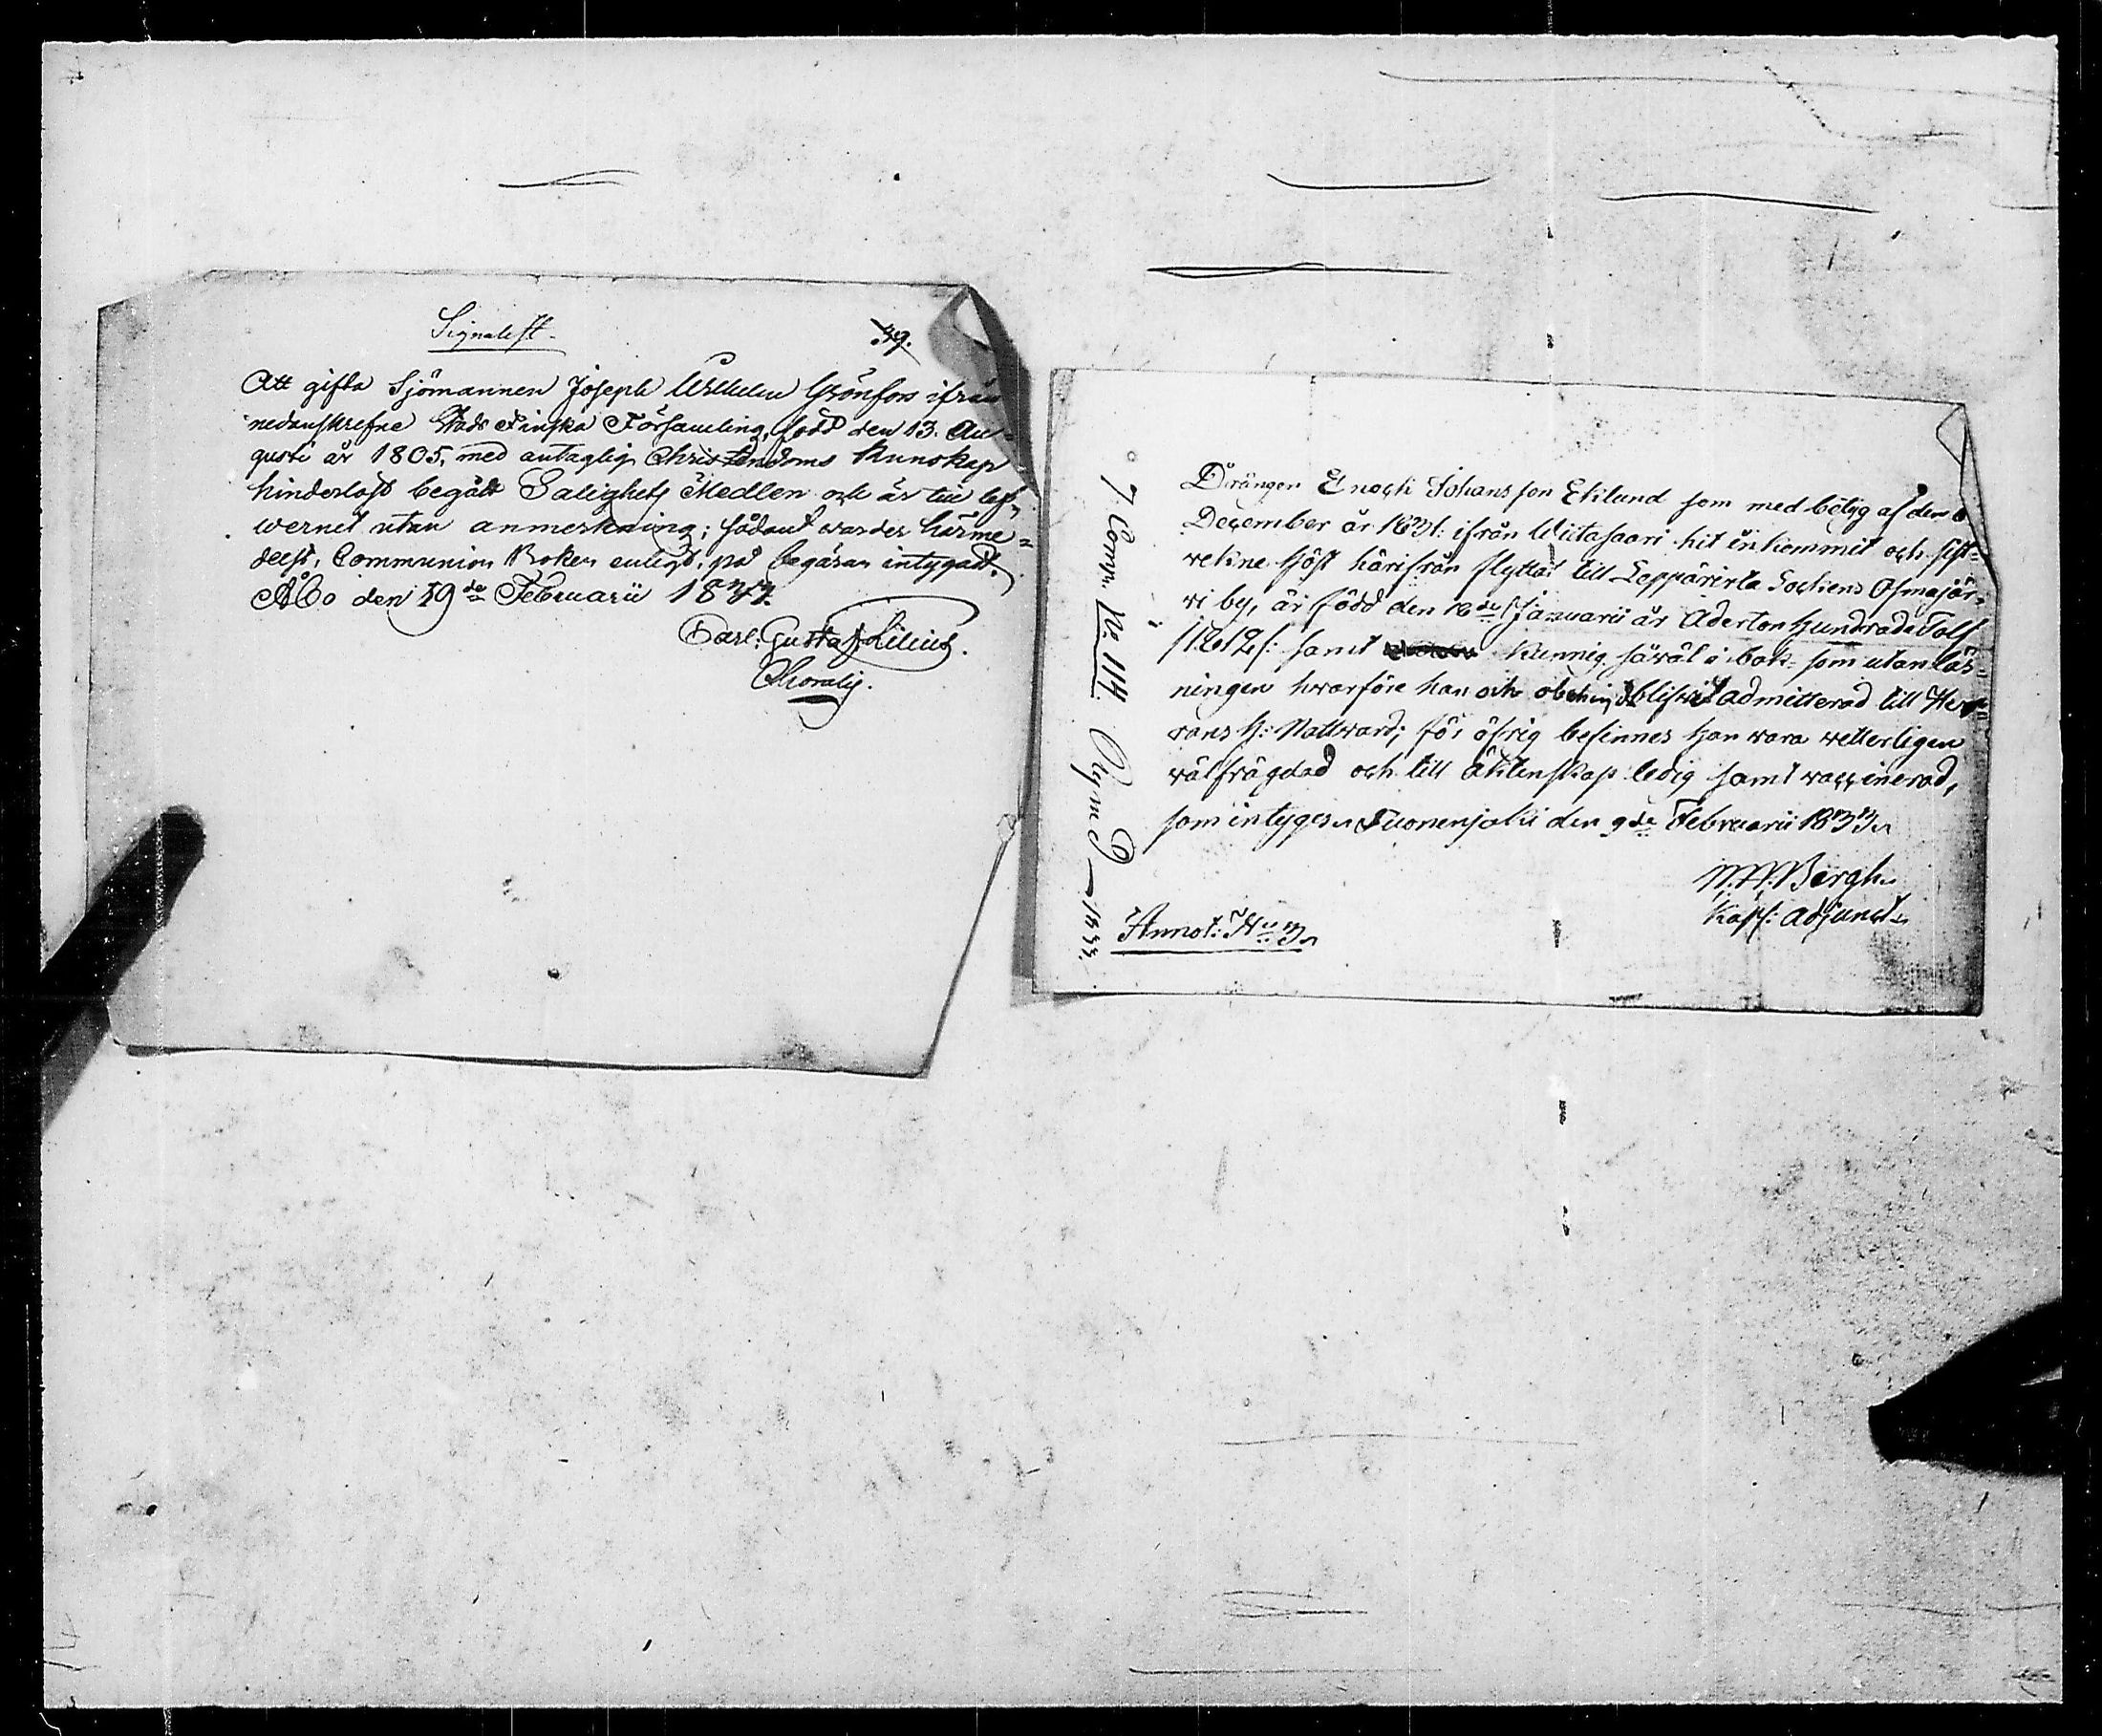 Signalist
39.
Att gifta Sjömannen Joseph Wilhelm Grönfors ifrån
nedanskrefne Stads Finska Församling, född den 13. Au-
gusti år 1805, med antaglig Christendoms Kunskap
hinderlöst begått Salighets Medlen och är till lef-
wernet utan anmerkning; sådant warder härme-
delst, Communion Boken enligt, på begäran intygadt.
Åbo den 19de Februarii 1833.
Carl Gustaf Lilius.
7. Comp. No. 114.
1833.
Drängen Enoch Johansson Eklund som med betyg af den 6
December år 1831: ifrån Wiitasaari hit inkommit och sist-
wekne höst härifrån flyttat till Leppävirta Sockens Osmajär-
wi by, är född den 16de Januarii år Aderton Hundrade Tolf
/:1812/: samt kunnig såwäl i bok- som utanläs-
ningen hwarföre han och obehindr. blifwit admitterad till Her-
rans H: Nattward; för öfrig befinnes han wara wetterligen
wälfrägdad och till äktenskap ledig samt waccinerad,
som intyges Suonenjoki den 9de Februarii 1833.
Bergh.
Kapl: Adjunct.
Annot: N:o 3